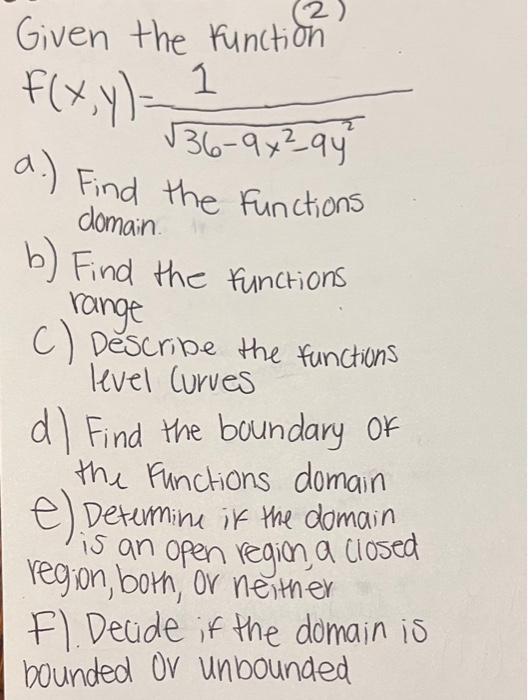 (2)
Given the function
f(x,y)= 1
√36-9x²-9y²
a.) Find the functions
domain.
b) Find the functions
range
C) Describe the functions
level curves
d) Find the boundary of
the functions domain
e) Determine if the domain
is an open region, a closed
region, both, or neither
F). Decide if the domain is
bounded or unbounded